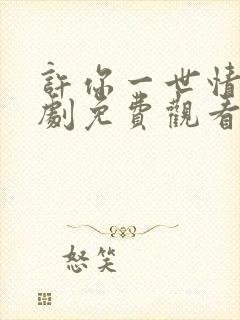 許你一世情
劇免費觀看
怒笑